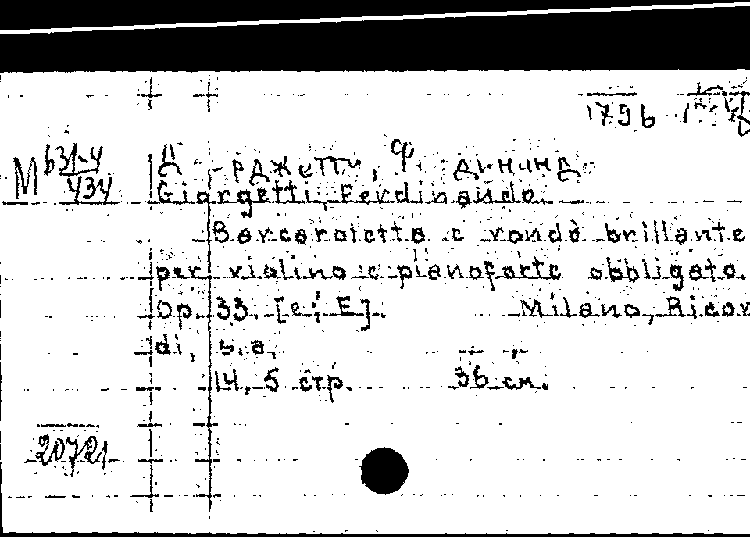 1796
М 631-4/434
Giorgetti, Ferdinando.
Barcaroletta e rondò brillante
per violino e pianoforte obbligato.
Op. 33. [e; E]. Milano, Ricor
di, s.a.
14, 5 стр. 36 см.
20721